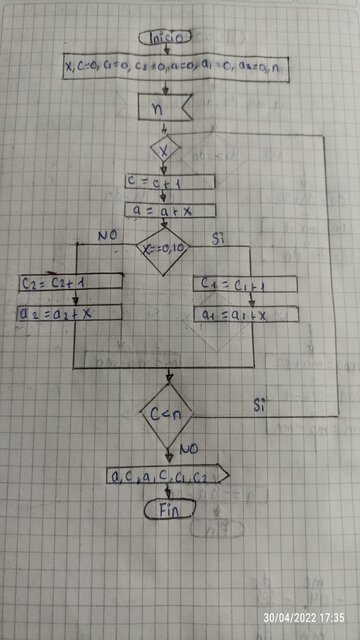 Inicio
x, c=0, c1=0, c2=0, a=0, a1=0, a2=0, n
n
x
c = c+1
a = a+x
NO
x==0,10
Si
c2 = c2+1
c1 = c1+1
a2 = a2+x
a1 = a1+x
c<n
Si
NO
a, c, a, c, c1, c2
Fin
30/04/2022 17:35